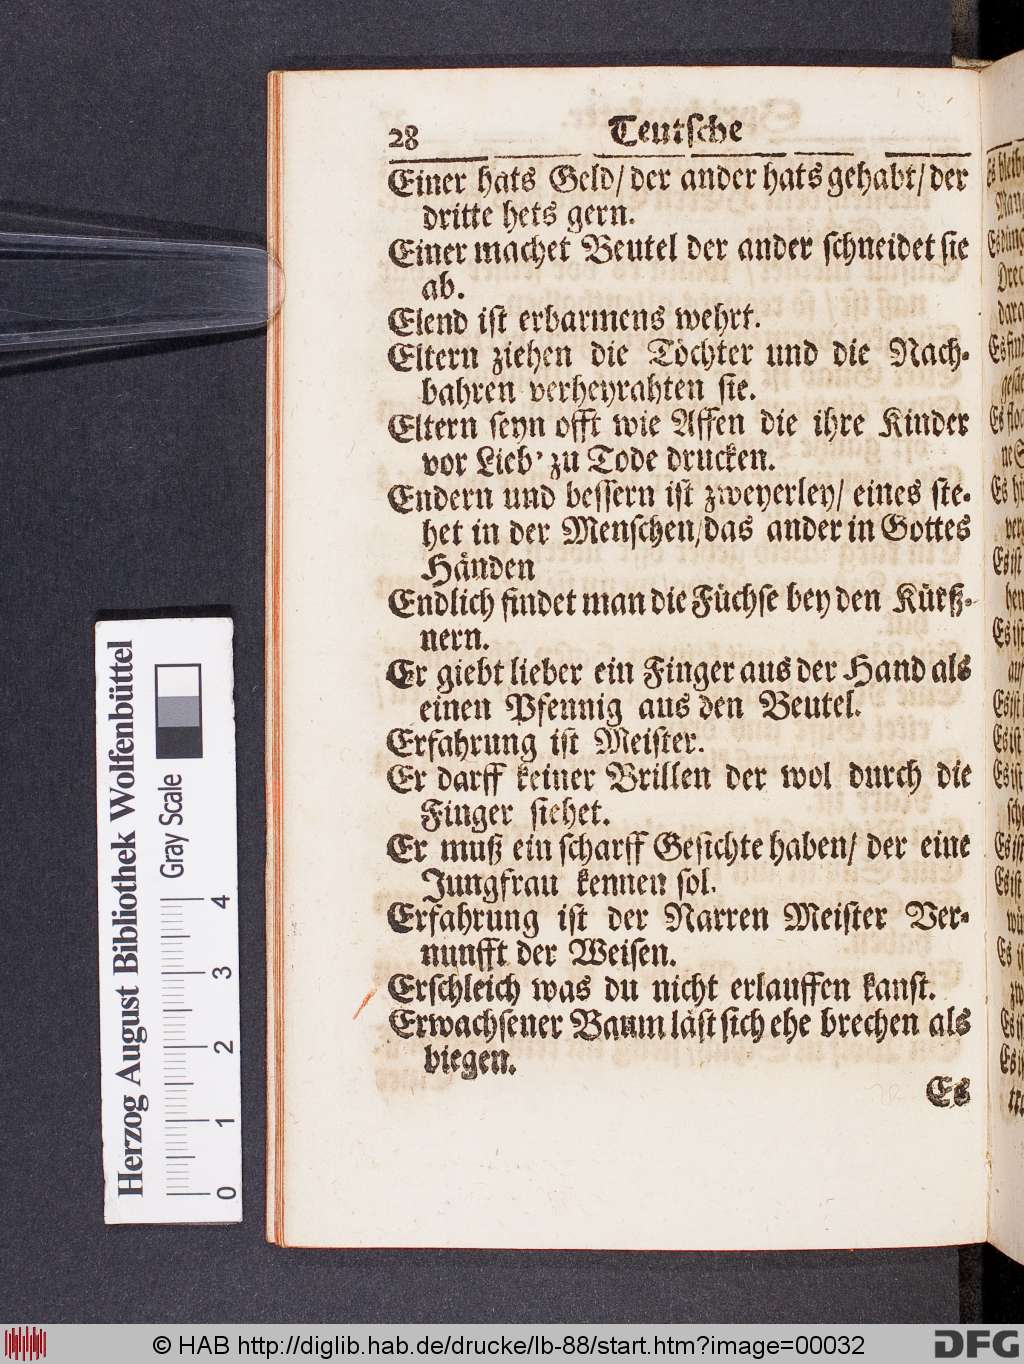 28 Teutsche
Einer hats Geld/ der ander hats gehabt/ der
dritte hets gern.
Einer machet Beutel der ander schneidet sie
ab.
Elend ist erbarmens wehrt.
Eltern ziehen die Töchter und die Nach-
bahren verheyrahten sie.
Eltern seyn offt wie Affen die ihre Kinder
vor Lieb' zu Tode drucken.
Endern und bessern ist zweyerley/ eines ste-
het in der Menschen/das ander in Gottes
Händen
Endlich findet man die Füchse bey den Kürß-
nern.
Er giebt lieber ein Finger aus der Hand als
einen Pfennig aus den Beutel.
Erfahrung ist Meister.
Er darff keiner Brillen der wol durch die
Finger siehet.
Er muß ein scharff Gesichte haben/ der eine
Jungfrau kennen sol.
Erfahrung ist der Narren Meister Ver-
nunfft der Weisen.
Erschleich was du nicht erlauffen kanst.
Erwachsener Baum läst sich ehe brechen als
biegen.
Es
Herzog August Bibliothek Wolfenbüttel
Gray Scale
0 1 2 3 4
© HAB http://diglib.hab.de/drucke/lb-88/start.htm?image=00032
DFG